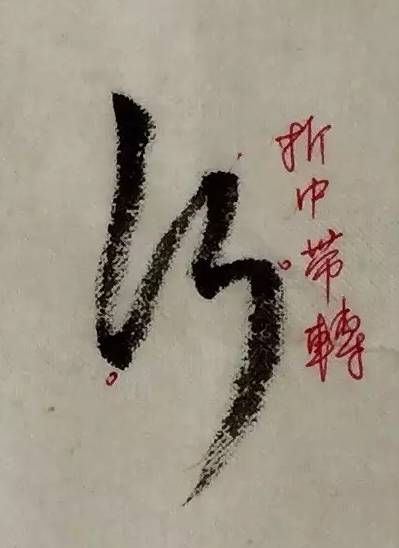 行
折中带轉